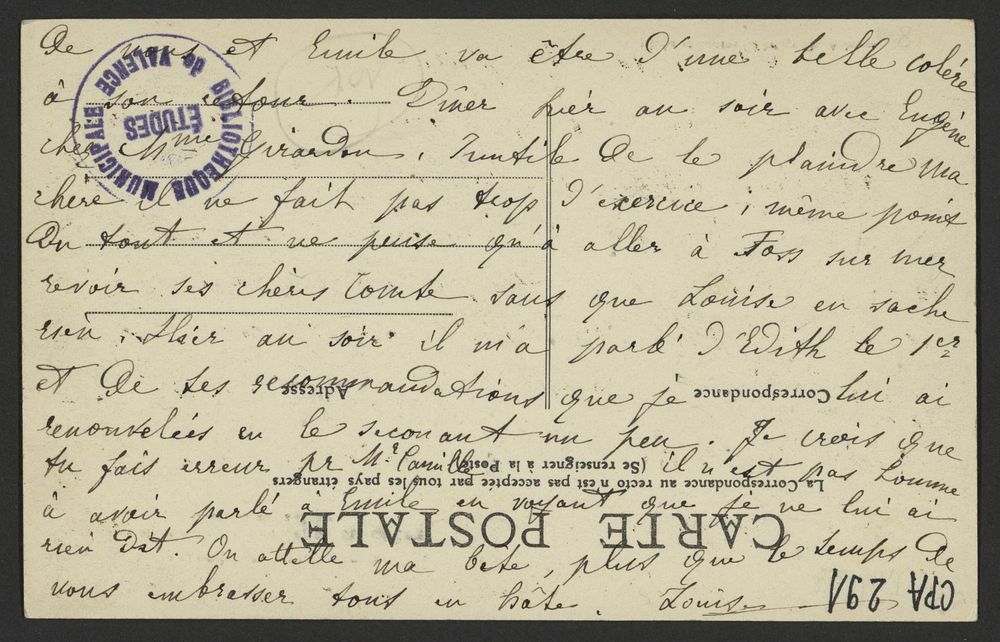 de vous et Emile va être d'une belle colère
à son retour. Dîner hier au soir avec Eugène
chez Mme Girardon, Inutile de le plaindre ma
chère il ne fait pas trop d'exercice, même point
du tout et ne pense qu'à aller à Foss sur mer
revoir ses chéris Comte sans que Louise en sache
rien. Hier au soir il m'a parlé d'Edith le 1er
et de tes recommandations que je lui ai
renouvelées en le secouant un peu. Je crois que
tu fais erreur pr Mr Camille, il n'est pas homme
à avoir parlé à Emile en voyant que je ne lui ai
rien dit. On attelle ma bete, plus que le temps de
vous embrasser tous en hâte. Louise
BIBLIOTHÈQUE MUNICIPALE de VALENCE
ÉTUDES
CARTE POSTALE
La Correspondance au recto n'est pas acceptée par tous les pays étrangers
(Se renseigner à la Poste)
Correspondance
Adresse
CPA 291